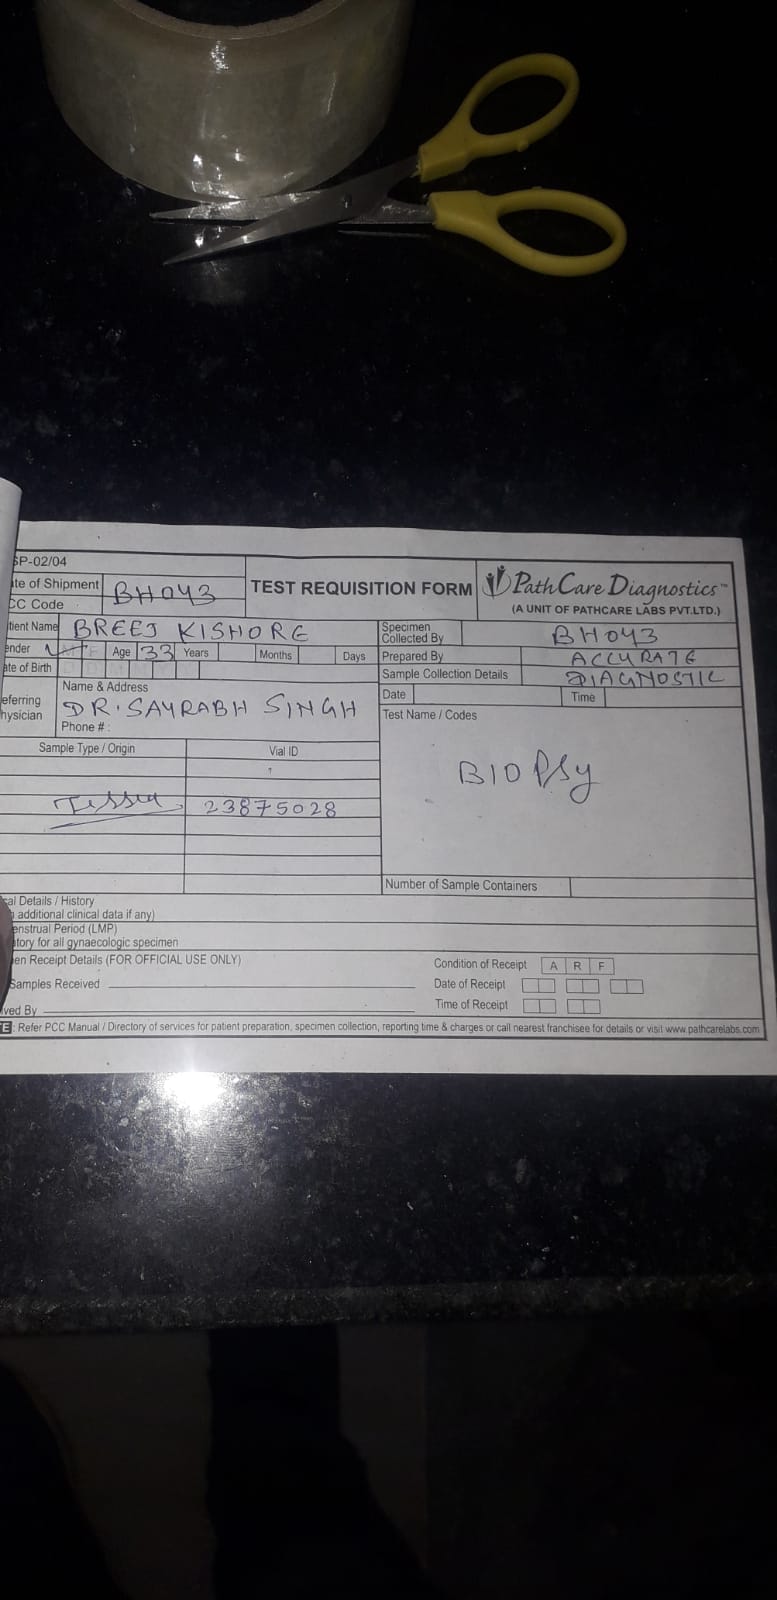 SP-02/04
te of Shipment
CC Code
BH043
TEST REQUISITION FORM
PathCare Diagnostics™
(A UNIT OF PATHCARE LABS PVT.LTD.)
tient Name BREEJ KISHORE
ender M F Age 33 Years Months Days
ate of Birth
Specimen Collected By BH043
Prepared By ACCURATE
Sample Collection Details DIAGNOSTIC
Date Time
eferring
hysician
Name & Address
DR. SAYRABH SINGH
Phone # :
Test Name / Codes
BIOPSy
Sample Type / Origin Vial ID
23875028
Number of Sample Containers
cal Details / History
additional clinical data if any)
enstrual Period (LMP)
atory for all gynaecologic specimen
en Receipt Details (FOR OFFICIAL USE ONLY)
Samples Received
ved By
Condition of Receipt A R F
Date of Receipt
Time of Receipt
E : Refer PCC Manual / Directory of services for patient preparation, specimen collection, reporting time & charges or call nearest franchisee for details or visit www.pathcarelabs.com